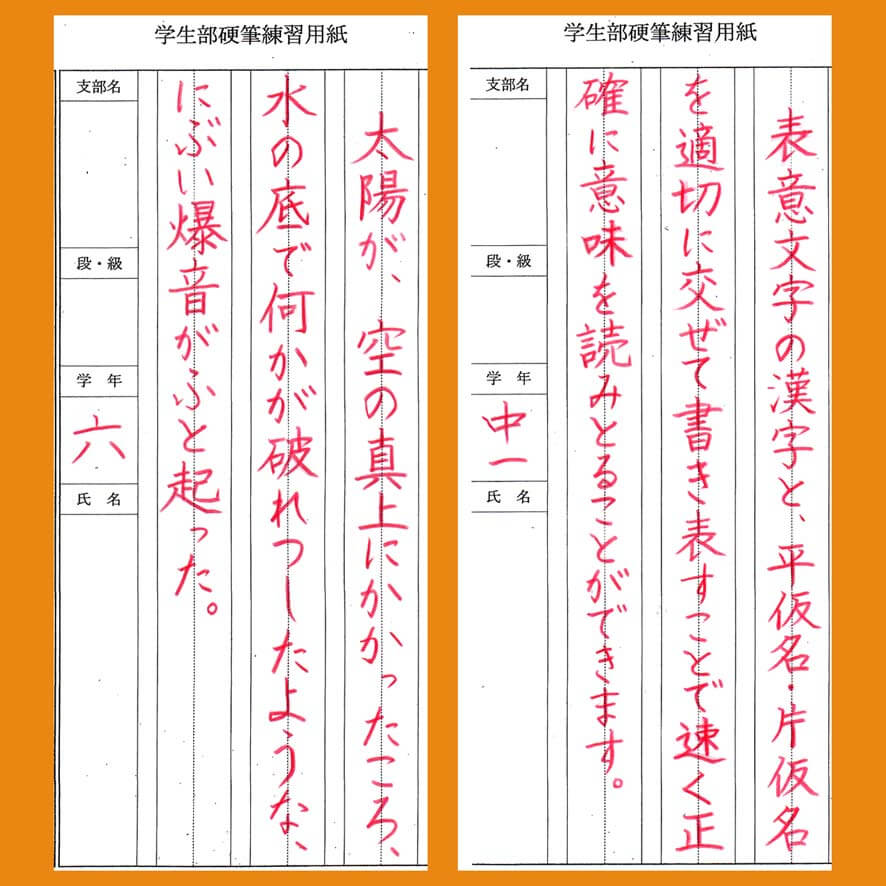 学生部硬筆練習用紙
太陽が、空の真上にかかったころ、
水の底で何かが破れつしたような、
にぶい爆音がふと起った。
支部名
段・級
学年
六
氏名
学生部硬筆練習用紙
表意文字の漢字と、平仮名・片仮名
を適切に交ぜて書き表すことで速く正
確に意味を読みとることができます。
支部名
段・級
学年
中一
氏名